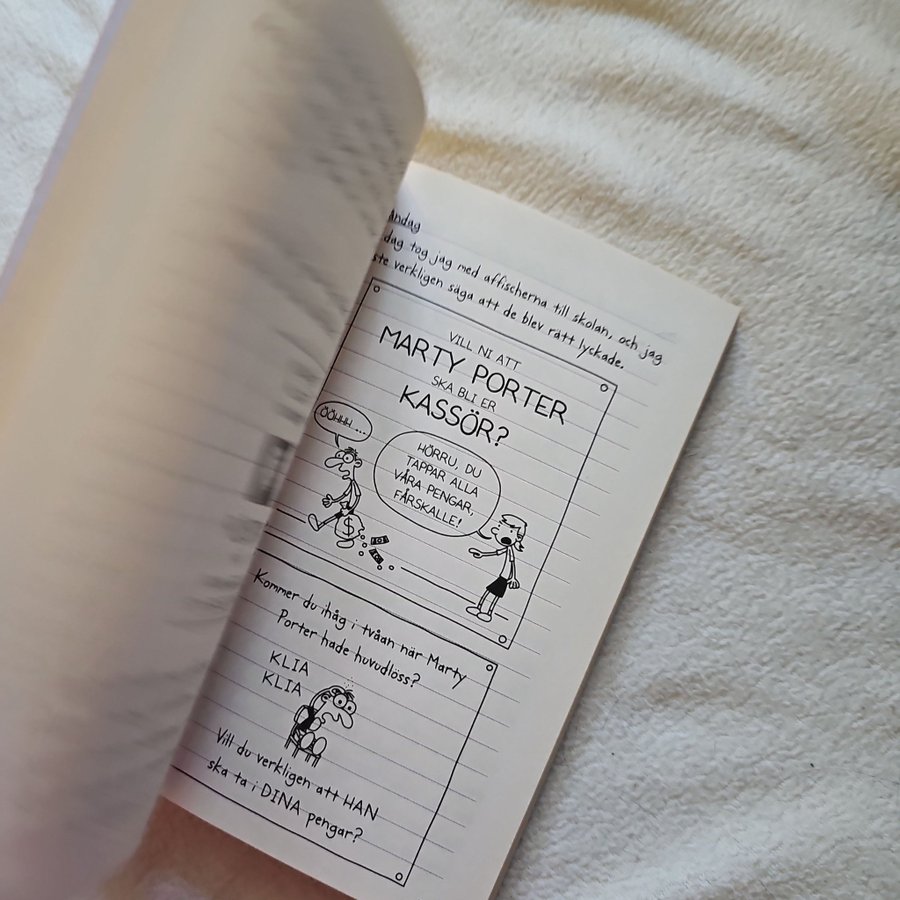 dag tog jag med affischerna till skolan, och jag
verkligen säga att de blev rätt lyckade.
VILL NI ATT
MARTY PORTER
SKA BLI ER
KASSÖR?
ÖÖHHH...
HÖRRU, DU
TAPPAR ALLA
VÅRA PENGAR,
FÅRSKALLE!
$
Kommer du ihåg i tvåan när Marty
Porter hade huvudlöss?
KLIA
KLIA
Vill du verkligen att HAN
ska ta i DINA pengar?